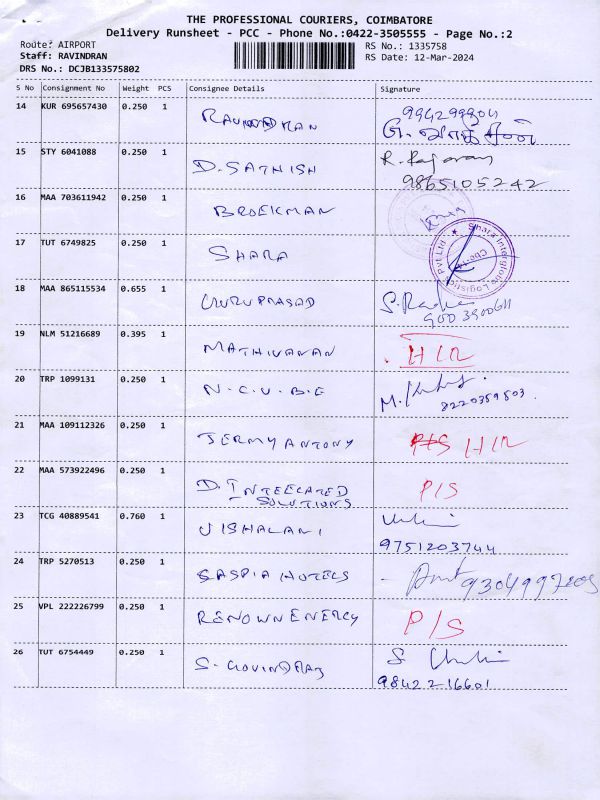 THE PROFESSIONAL COURIERS, COIMBATORE
Delivery Runsheet - PCC - Phone No.:0422-3505555 - Page No.:2
Route: AIRPORT RS No.: 1335758
Staff: RAVINDRAN RS Date: 12-Mar-2024
DRS No.: DCJB133575802
S No Consignment No Weight PCS Consignee Details Signature
14 KUR 695657430 0.250 1
15 STY 6041088 0.250 1 D. SATHISH R. Rajavan
9865105242
16 MAA 703611942 0.250 1 BROEKMAN
17 TUT 6749825 0.250 1 SHARA Sharat Interglobe Logistics Pvt. Ltd.
18 MAA 865115534 0.655 1 GURUPRASAD
19 NLM 51216689 0.395 1 MATHIVANAN
20 TRP 1099131 0.250 1 N.C.U.B.E
8220359503
21 MAA 109112326 0.250 1 JERMY ANTONY
22 MAA 573922496 0.250 1 D. INTEELATED P/S
SOLUTIONS
23 TCG 40889541 0.760 1 VISHALANI
9751203744
24 TRP 5270513 0.250 1 SASPIA HOTELS
25 VPL 222226799 0.250 1 RENOWN ENERGY P/S
26 TUT 6754449 0.250 1 S. GOVINDRAJ
9842216601